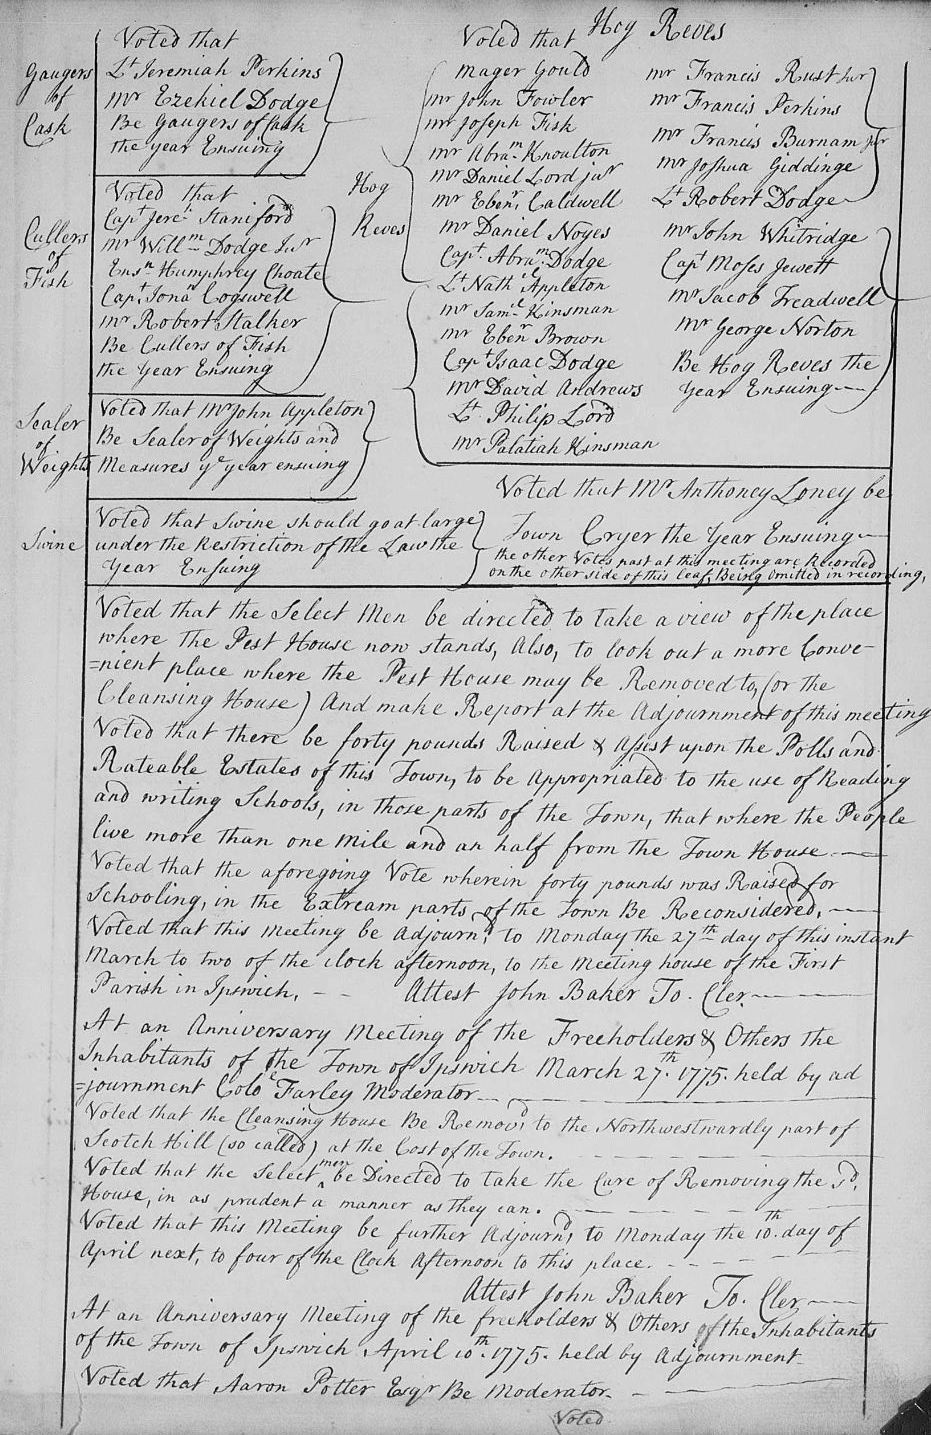 Gaugers
of
Cask
Voted that
Lt Jeremiah Perkins
mr Ezekiel Dodge
Be Gaugers of Cask
the year Ensuing
Cullers
of
Fish
Voted that
Capt Jerem Staniford
mr Willm Dodge Junr
Ensn Humphrey Choate
Capt Jonan Cogswell
mr Robert Stalker
Be Cullers of Fish
the Year Ensuing
Sealer
of
Weights
Voted that Mr John Appleton
Be Sealer of Weights and
Measures ye year ensuing
Swine
Voted that Swine should go at large
under the Restriction of the Law the
Year Ensuing
Hog Reves
Voted that
Hog
Reves
Mager Gould
mr John Fowler
mr Joseph Fish
mr Abram Knoulton
mr Daniel Lord junr
mr Ebenr Caldwell
mr Daniel Noyes
Capt Abram Dodge
Lt Nathl Appleton
mr Saml Kinsman
mr Ebenr Brown
Capt Isaac Dodge
mr David Andrews
Lt Philip Lord
mr Palatiah Kinsman
mr Francis Rust Junr
mr Francis Perkins
mr Francis Burnam junr
mr Joshua Giddinge
Lt Robert Dodge
mr John Whitridge
Capt Moses Jewett
mr Jacob Treadwell
mr George Norton
Be Hog Reves the
Year Ensuing
Voted that Mr Anthoney Loney be
Town Cryer the Year Ensuing
the other Votes past at this meeting are Recorded
on the other side of this leaf, Being omitted in recording,
Voted that the Select Men be directed to take a view of the place
where the Pest House now stands, Also, to look out a more Conve-
=nient place where the Pest House may be Removed to, (or the
Cleansing House) And make Report at the Adjournment of this meeting
Voted that there be forty pounds Raised & Assist upon the Polls and
Rateable Estates of this Town, to be Appropriated to the use of Reading
and writing Schools, in those parts of the Town, that where the People
live more than one mile and an half from the Town House
Voted that the aforegoing Vote wherein forty pounds was Raised for
Schooling, in the Extream parts of the Town Be Reconsidered,
Voted that this Meeting be Adjournd to Monday the 27th day of this instant
March to two of the clock afternoon, to the Meeting house of the First
Parish in Ipswich, - - Attest John Baker To. Cler
At an Anniversary Meeting of the Freeholders & Others the
Inhabitants of the Town of Ipswich March 27th 1775. held by ad
=journment Colo Farley Moderator
Voted that the Cleansing House Be Removd to the Northwestwardly part of
Scotch Hill (so called) at the Cost of the Town.
Voted that the Select men be Directed to take the Care of Removing the sd
House, in as prudent a manner as they can.
Voted that this Meeting be further Adjournd to Monday the 10th day of
April next, to four of the Clock Afternoon to this place.
Attest John Baker To. Cler
At an Anniversary Meeting of the freeholders & Others of the Inhabitants
of the Town of Ipswich April 10th 1775. held by Adjournment
Voted that Aaron Potter Esqr Be Moderator
Voted